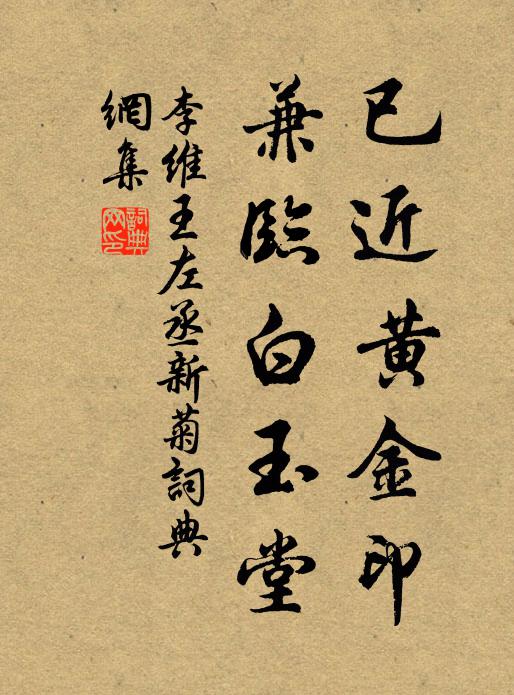 已近黄金印
兼臨白玉堂
李維王左丞新菊詞典
網集
詞典
网印